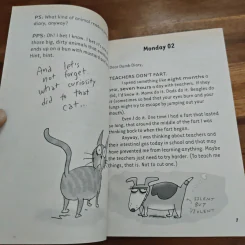 P.S. What kind of animal
diary, anyway?
PPS: Oh! I bet I know. I bet it's
those big, dirty animals that
ends up on a bun with mustard
that, toot.
And let's
not forget
what curiosity
did to that
cat...
Monday 02
Dear Dumb Diary,
TEACHERS DON'T FART.
I spend something like eight months a
year, seven hours a day with teachers. If they
did, I'd know it. Moms do it. Dads do it. Beagles do
it (sometimes so bad that your eyes burn and your
lungs might try to escape by jumping out your
mouth).
Even I do it. One time I had a fart that lasted
so long, that around the middle of the fart I was
thinking back to when the fart began.
Anyway, I was thinking about teachers and
their intestinal gas today at school and this may
have prevented me from learning anything. Maybe
the teachers just need to try harder. (To teach me
things, that is. Not to cut one.)
SILENT
BUT
VIOLENT